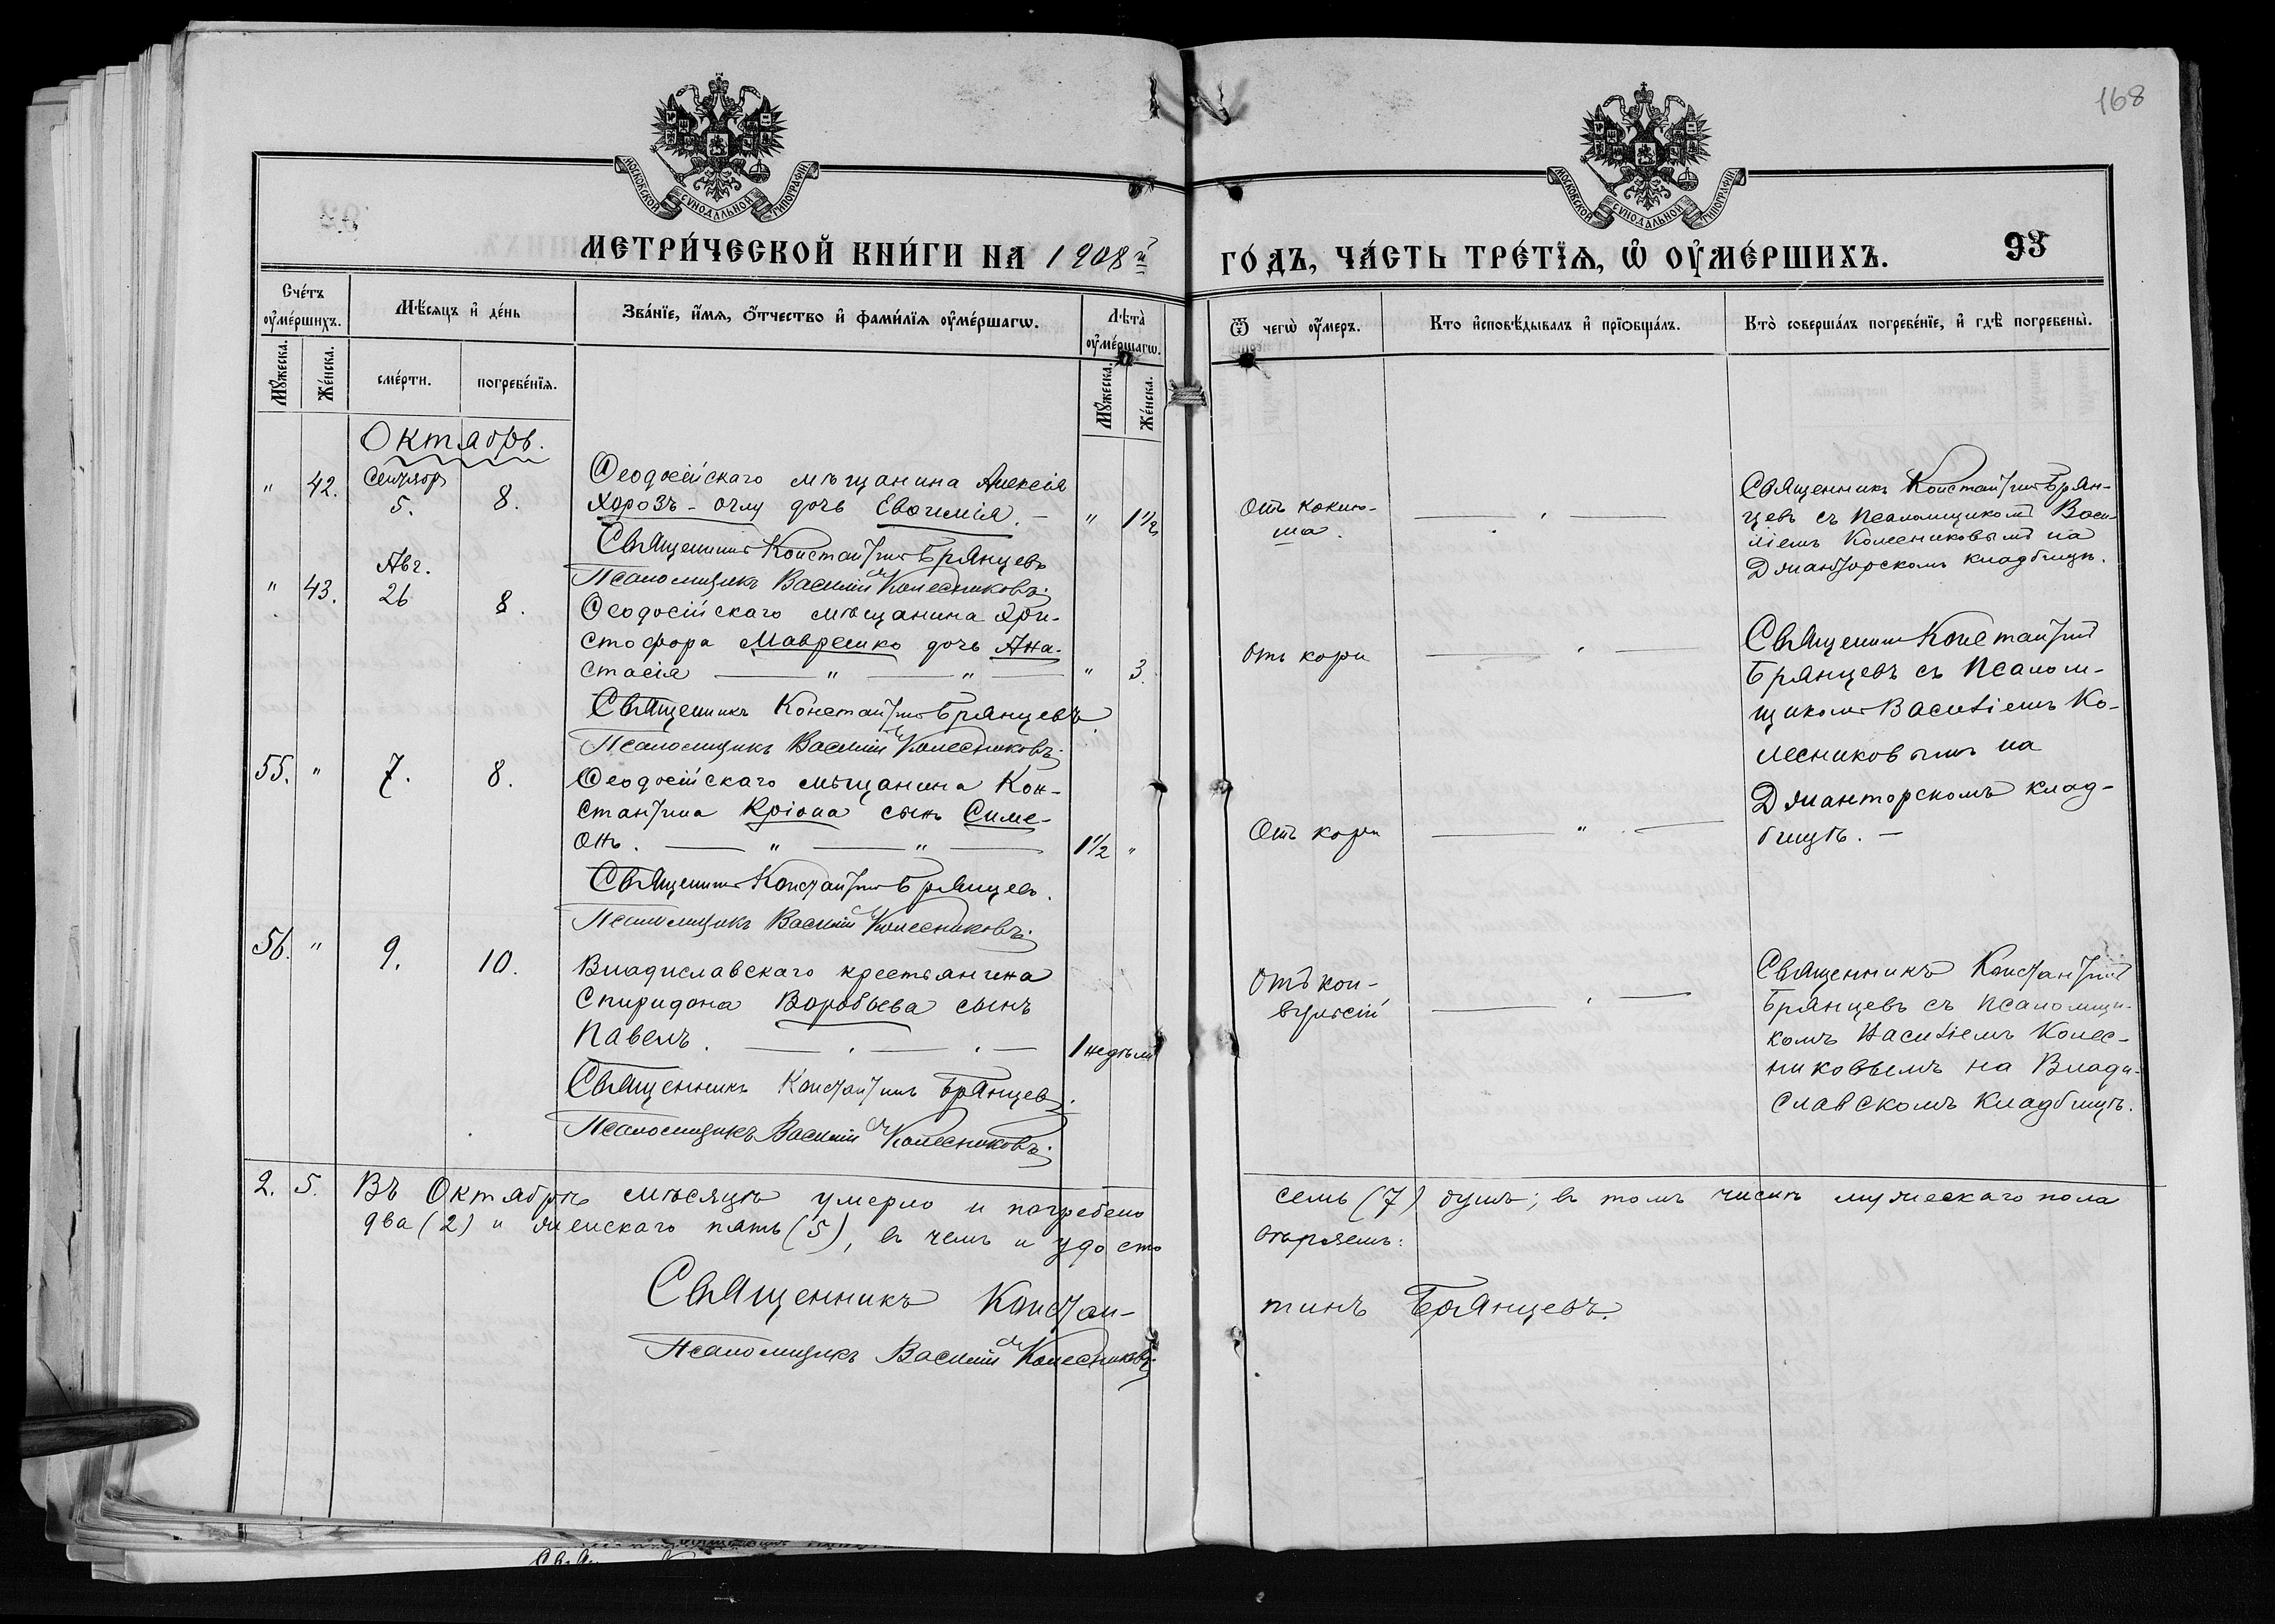 168
МОСКОВСКОЙ СѴНОДАЛЬНОЙ ТИПОГРАФІИ.
МОСКОВСКОЙ СѴНОДАЛЬНОЙ ТИПОГРАФІИ.
МЕТРИ́ЧЕСКОЙ КНИ́ГИ НА 1908й ГО́ДЪ, ЧА́СТЬ ТРЕ́ТЇѦ, Ѡ҆ ОУ҆МЕ́РШИХЪ. 93
Сче́тъ оу҆ме́ршихъ.
Мѣ́сяцъ и҆ де́нь
Зва́нїе, и҆́мѧ, ѻ҆́тчество и҆ фами́лїѧ оу҆ме́ршагѡ.
Лѣ́та оу҆ме́ршагѡ.
Ѿ чегѡ̀ оу҆́меръ.
Кто̀ и҆сповѣ́дывалъ и҆ прїѡбща́лъ.
Кто̀ соверша́лъ погребе́нїе, и҆ гдѣ̀ погребены̀.
Мꙋ́жеска. Же́нска.
сме́рти. погребе́нїѧ.
Мꙋ́жеска. Же́нска.
Октябрь.
" 42. Сентябр. 5. 8.
Ѳеодосійскаго мѣщанина Алексія
Хорозъ-оглу дочь Евѳимія. — " 1½
Священникъ Константинъ Брянцевъ
Псаломщикъ Василій Колесниковъ.
Отъ коклю-
ша.
Священникъ Константинъ Брян-
цевъ съ псаломщикомъ Васи-
ліемъ Колесниковымъ на
Джанторскомъ кладбищѣ.
" 43. Авг. 26 8.
Ѳеодосійскаго мѣщанина Хри-
стофора Маврешко дочь Ана-
стасія — " — " — " 3.
Священникъ Константинъ Брянцевъ
Псаломщикъ Василій Колесниковъ.
Отъ кори
Священникъ Константинъ
Брянцевъ съ псалом-
щикомъ Василіемъ Ко-
лесниковымъ на
Джанторскомъ клад-
бищѣ. —
55. " 7. 8.
Ѳеодосійскаго мѣщанина Кон-
стантина Кріона сынъ Симе-
онъ. — " — " — 1½ "
Священникъ Константинъ Брянцевъ.
Псаломщикъ Василій Колесниковъ.
Отъ кори
56. " 9. 10.
Владиславскаго крестьянина
Спиридона Воробьева сынъ
Павелъ. — . — . — 1 недѣли
Священникъ Константинъ Брянцевъ.
Псаломщикъ Василій Колесниковъ.
Отъ кон-
вульсій
Священникъ Константинъ
Брянцевъ съ псаломщи-
комъ Василіемъ Колес-
никовымъ на Влади-
славскомъ кладбищѣ.
2. 5. Въ Октябрѣ мѣсяцѣ умерло и погребено семь (7) душъ; въ томъ числѣ мужескаго пола
два (2) и женскаго пять (5), въ чемъ и удостовѣряемъ:
Священникъ Константинъ Брянцевъ.
Псаломщикъ Василій Колесниковъ.